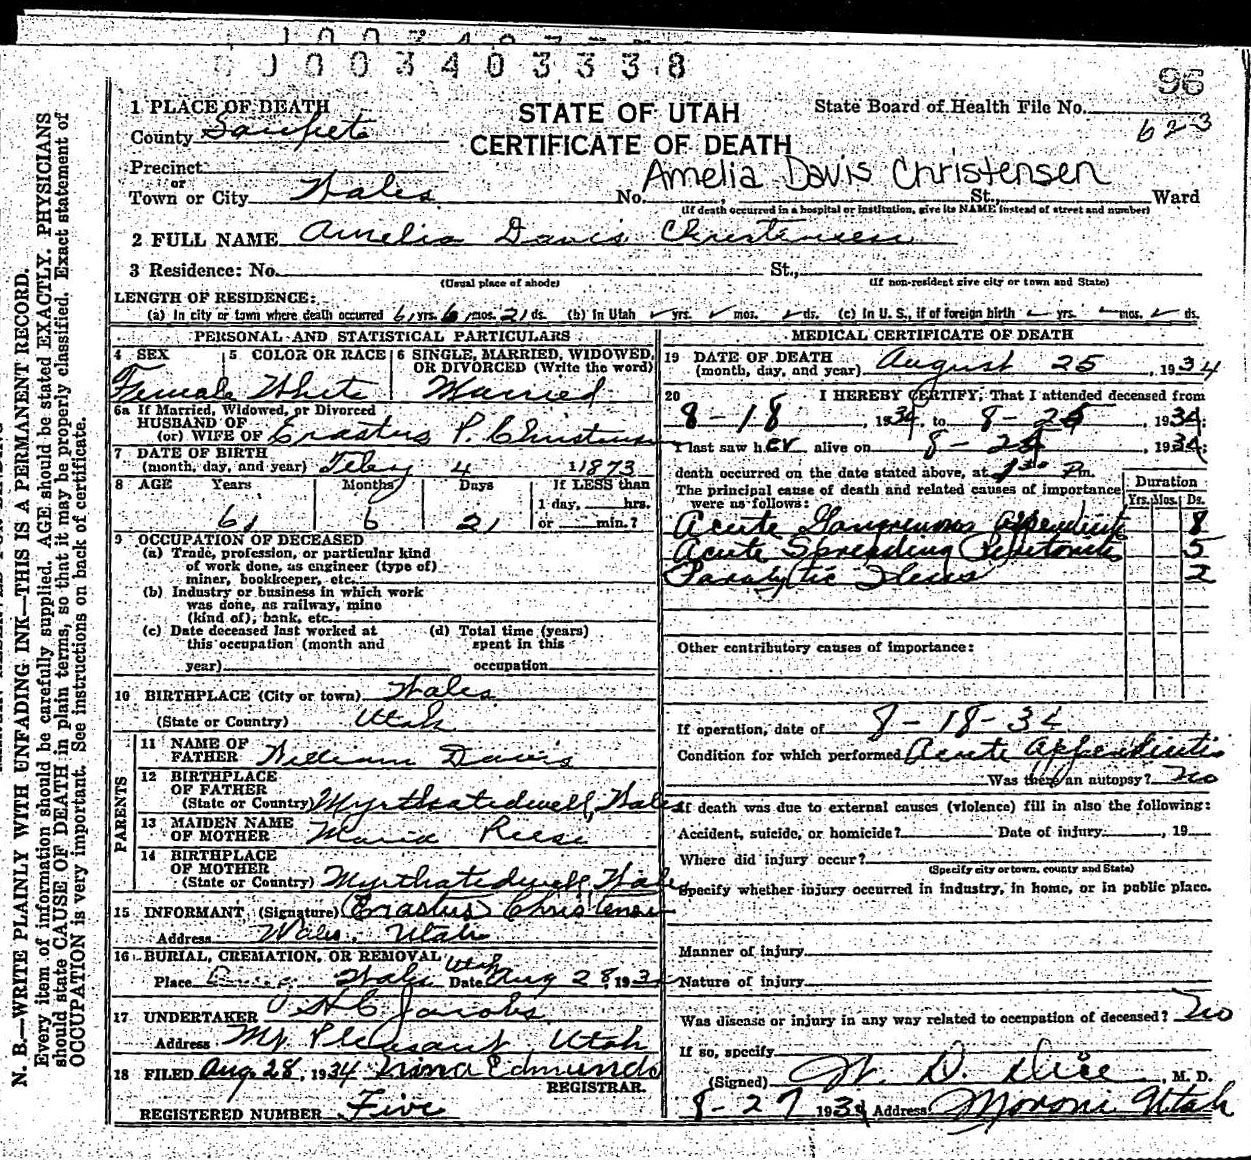 0 0 0 3 4 0 3 3 3 8
96
1 PLACE OF DEATH
County Sanpete
Precinct
or
Town or City Wales
STATE OF UTAH
CERTIFICATE OF DEATH
State Board of Health File No.
623
Amelia Davis Christensen
No. St., Ward
(If death occurred in a hospital or institution, give its NAME instead of street and number)
2 FULL NAME Amelia Davis Christensen
3 Residence: No. St.,
(Usual place of abode) (If non-resident give city or town and State)
LENGTH OF RESIDENCE:
(a) In city or town where death occurred 61 yrs. 6 mos. 21 ds. (b) In Utah yrs. mos. ds. (c) In U. S., if of foreign birth yrs. mos. ds.
PERSONAL AND STATISTICAL PARTICULARS
4 SEX 5 COLOR OR RACE 6 SINGLE, MARRIED, WIDOWED,
OR DIVORCED (Write the word)
Female White Married
6a If Married, Widowed, or Divorced
HUSBAND OF
(or) WIFE OF Erastus P. Christensen
7 DATE OF BIRTH
(month, day, and year) Feby 4 1873
8 AGE Years Months Days If LESS than
1 day, hrs.
61 6 21 or min.?
9 OCCUPATION OF DECEASED
(a) Trade, profession, or particular kind
of work done, as engineer (type of)
miner, bookkeeper, etc.
(b) Industry or business in which work
was done, as railway, mine
(kind of), bank, etc.
(c) Date deceased last worked at
this occupation (month and
year)
(d) Total time (years)
spent in this
occupation
10 BIRTHPLACE (City or town) Wales
(State or Country) Utah
PARENTS
11 NAME OF
FATHER William Davis
12 BIRTHPLACE
OF FATHER
(State or Country) Myrthatedwell, Wales
13 MAIDEN NAME
OF MOTHER Maria Reese
14 BIRTHPLACE
OF MOTHER
(State or Country) Myrthatedwell, Wales
15 INFORMANT (Signature) Erastus Christensen
Address Wales, Utah
16 BURIAL, CREMATION, OR REMOVAL
Place Wales Utah Date Aug 28 193
17 UNDERTAKER H C Jacobs
Address Mt Pleasant, Utah
18 FILED Aug. 28, 1934 Nina Edmunds
REGISTRAR.
REGISTERED NUMBER Five
MEDICAL CERTIFICATE OF DEATH
19 DATE OF DEATH
(month, day, and year) August 25, 1934
20 I HEREBY CERTIFY, That I attended deceased from
8-18, 1934, to 8-25, 1934;
I last saw her alive on 8-24, 1934;
death occurred on the date stated above, at Pm.
The principal cause of death and related causes of importance
were as follows:
Duration
Yrs. Mos. Ds.
Acute Gangrenous Appendicitis 8
Acute Spreading Peritonitis 5
Paralytic Ileus 2
Other contributory causes of importance:
If operation, date of 8-18-34
Condition for which performed Acute Appendicitis
Was there an autopsy? No
If death was due to external causes (violence) fill in also the following:
Accident, suicide, or homicide? Date of injury , 19
Where did injury occur?
(Specify city or town, county and State)
Specify whether injury occurred in industry, in home, or in public place.
Manner of injury
Nature of injury
Was disease or injury in any way related to occupation of deceased? No
If so, specify
(Signed) , M. D.
8-27 1934 Address Moroni Utah
N. B.—WRITE PLAINLY WITH UNFADING INK—THIS IS A PERMANENT RECORD.
Every item of information should be carefully supplied. AGE should be stated EXACTLY. PHYSICIANS
should state CAUSE OF DEATH in plain terms, so that it may be properly classified. Exact statement of
OCCUPATION is very important. See instructions on back of certificate.